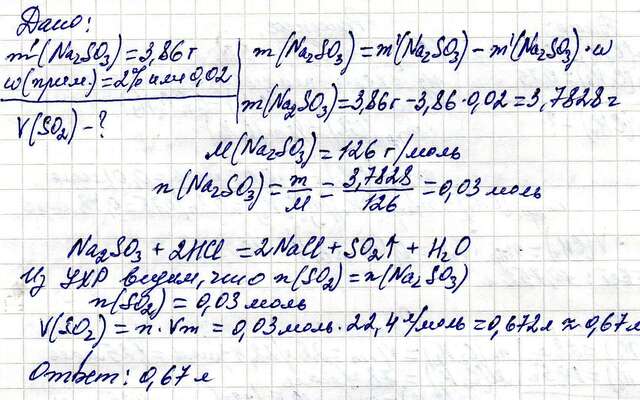 Дано:
m'(Na₂SO₃)=3,86г
w(прим)=2% или 0,02
V(SO₂)-?
m(Na₂SO₃)=m'(Na₂SO₃)-m'(Na₂SO₃)·w
m(Na₂SO₃)=3,86г-3,86·0,02=3,7828г
M(Na₂SO₃)=126 г/моль
n(Na₂SO₃)=m/M=3,7828/126=0,03 моль
Na₂SO₃+2HCl=2NaCl+SO₂↑+H₂O
Из УХР видим, что n(SO₂)=n(Na₂SO₃)
n(SO₂)=0,03 моль
V(SO₂)=n·Vm=0,03 моль·22,4 л/моль=0,672л≈0,67л
Ответ: 0,67 л